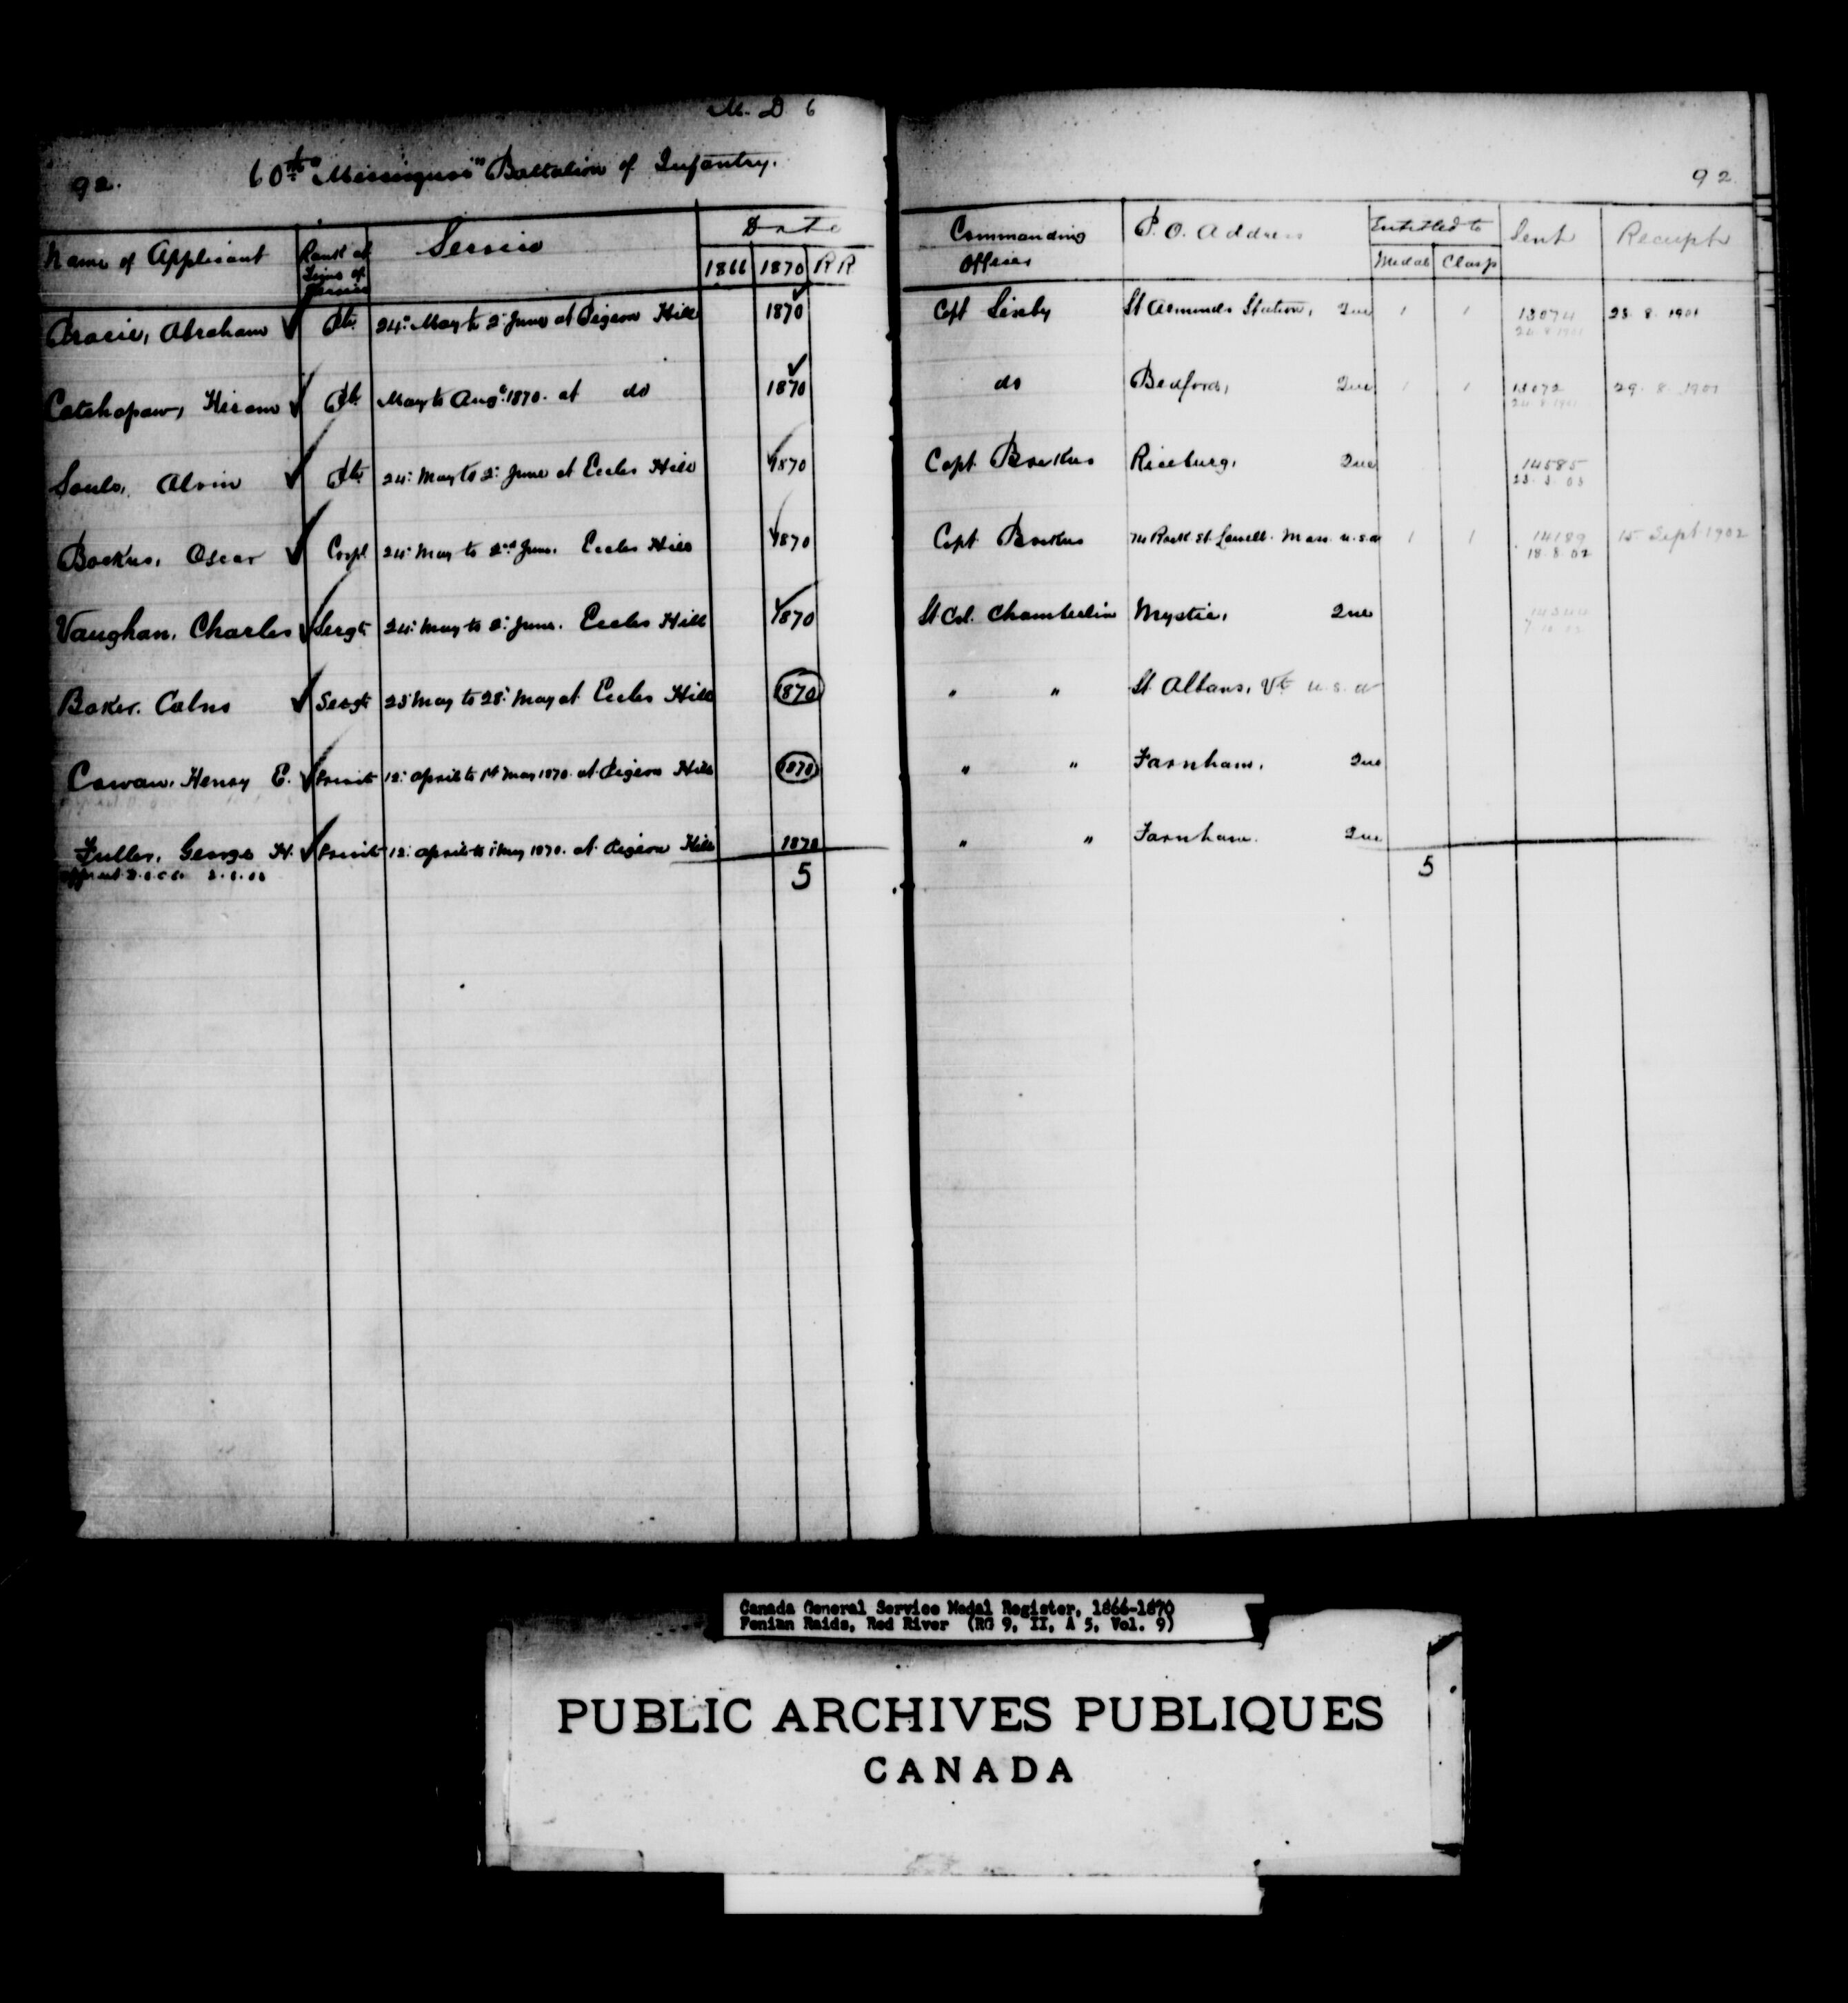 M. D 6
92.
60th "Missisquoi" Battalion of Infantry.
92
Name of Applicant Rank at Time of Service Service Date 1866 1870 R R Commanding Officer P. O. Address Entitled to Medal Clasp Sent Receipt
Abraham Pte 24" May to 2" June at Pigeon Hill 1870 Capt Sixby St Armands Station, Que 1 1 13074 28. 8. 1901
Catchapaw, Hiram Pte May to Augt 1870. at do 1870 do Bedford, Que 1 1 13072 29. 8. 1901
Soule, Alvin Pte 24" May to 2" June at Eccles Hill 1870 Capt Bockus Riceburg, Que 14585
23. 3. 03
Bockus, Oscar Corpl 24" May to 2nd June. Eccles Hill 1870 Capt Bockus St. Lowell. Mass. U.S.A 1 1 14189 15 Sept 1902
18. 8. 02
Vaughan, Charles Sergt 24" May to 2" June. Eccles Hill 1870 Lt. Col. Chamberlin Mystic, Que
Baker. Sergt 25" May to 28" May at Eccles Hill 1870 " " St. Albans, Vt U. S. A
Cowan, Henry E. Privt 12" April to 1st May 1870. at Pigeon Hill 1870 " " Farnham, Que
Fuller, George H. Privt 12" April to 1" May 1870. at Pigeon Hill 1870 " " Farnham. Que
5 5
Canada General Service Medal Register, 1866-1870
Fenian Raids, Red River (RG 9, II, A 5, Vol. 9)
PUBLIC ARCHIVES PUBLIQUES
CANADA